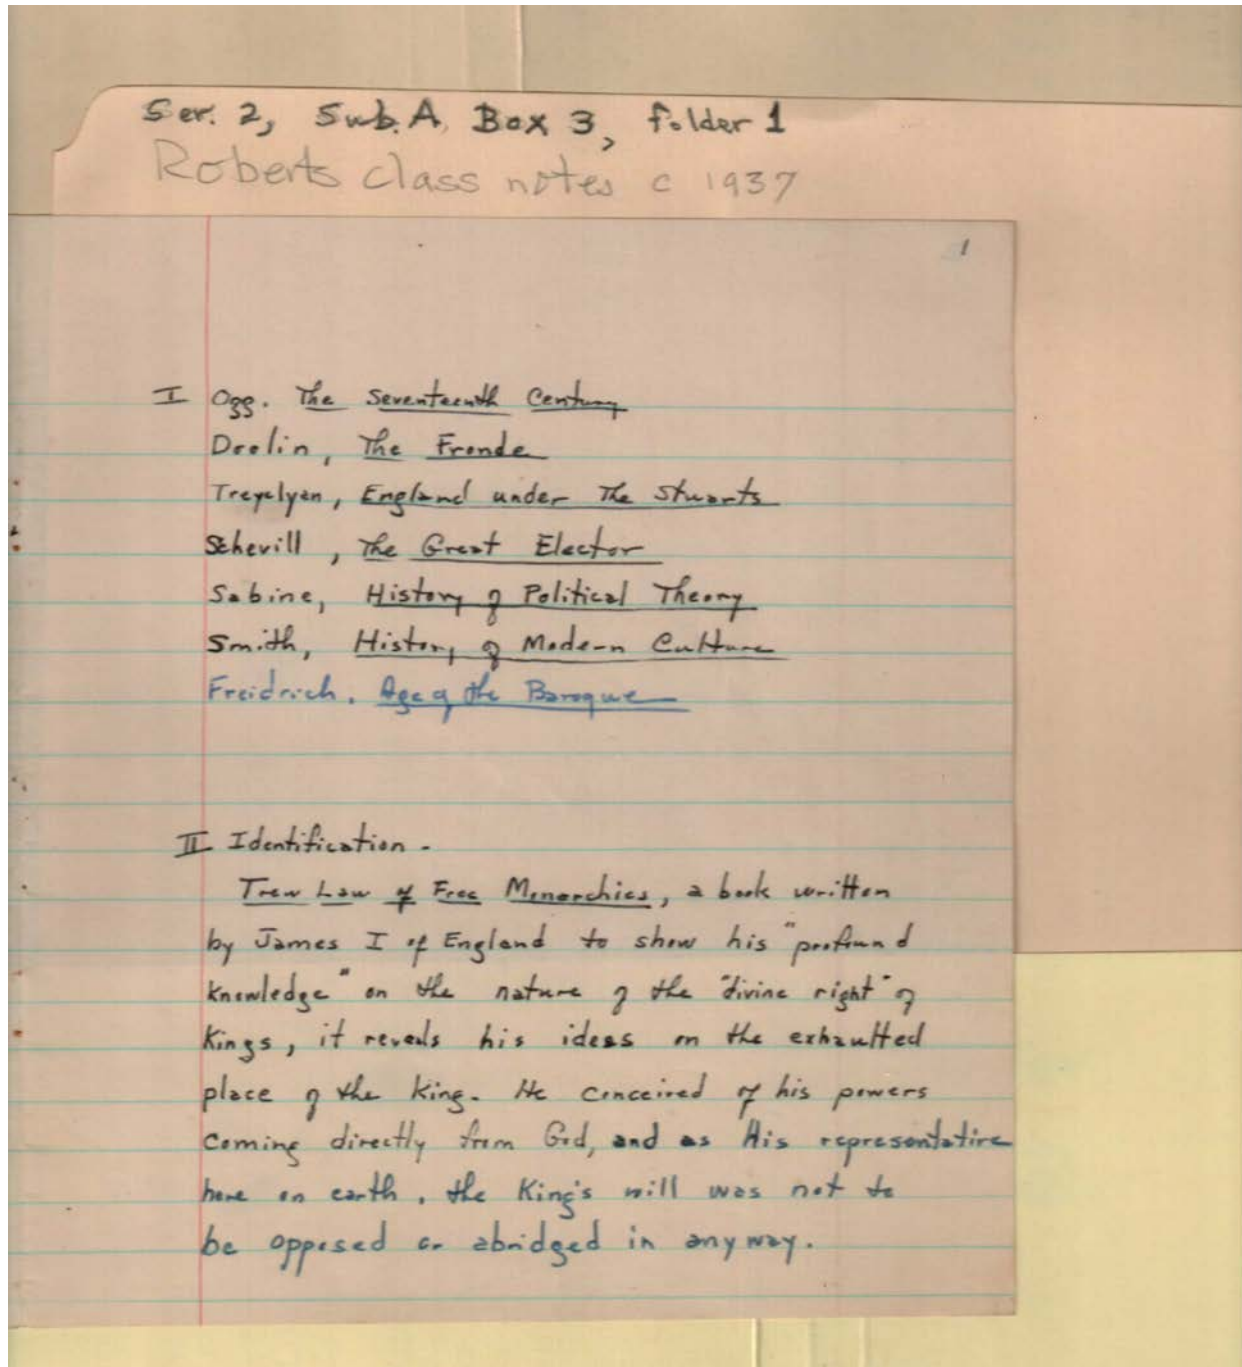 Ser. 2, Sub. A, Box 3, folder 1
Roberts class notes c 1937
1
I Ogg. The Seventeenth Century
Doolin, The Fronde
Treyelyan, England under The Stuarts
Schevill, The Great Elector
Sabine, History of Political Theory
Smith, History of Modern Culture
Freidrich. Age of the Baroque
II Identification -
Trew Law of Free Monarchies, a book written
by James I of England to show his "profound
Knowledge" on the nature of the "divine right" of
Kings, it reveals his ideas on the exhaulted
place of the King. He conceived of his powers
coming directly from God, and as His representative
here on earth, the King's will was not to
be opposed or abridged in anyway.